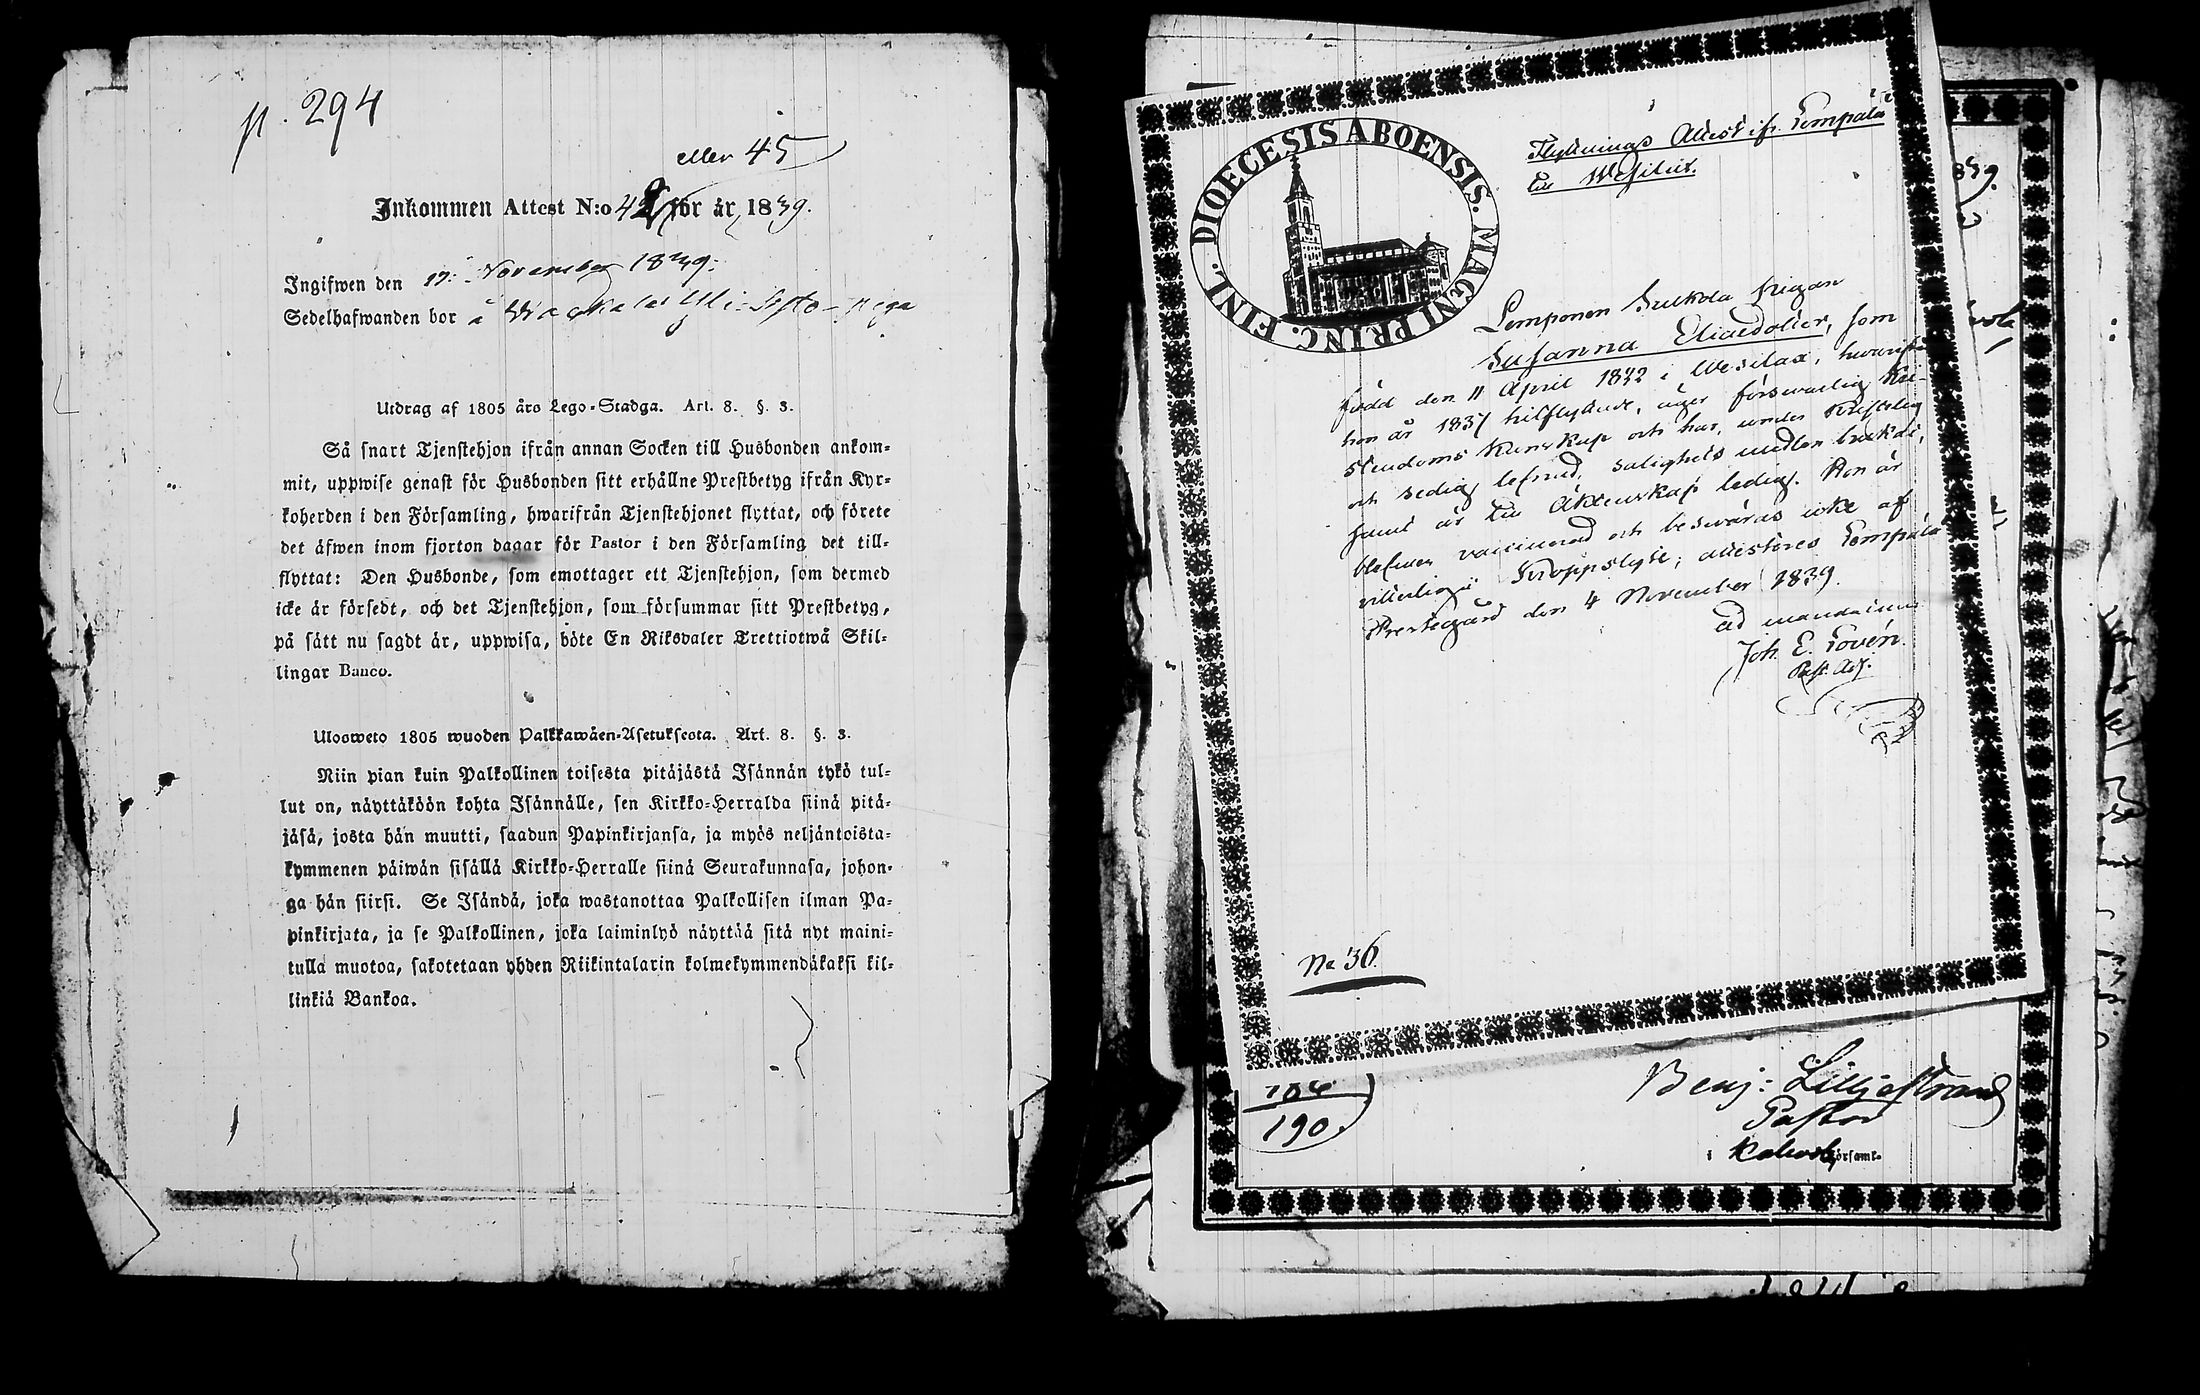 p. 294
eller 45
Inkommen Attest N:o 42 för år 1839.
Ingifwen den 17: November 1839:
Sedelhafwanden bor å
Utdrag af 1805 års Lego-Stadga. Art. 8. §. 3.
Så snart Tjenstehjon ifrån annan Socken till Husbonden ankom-
mit, uppwise genast för Husbonden sitt erhållne Prestbetyg ifrån Kyr-
koherden i den Församling, hwarifrån Tjenstehjonet flyttat, och förete
det äfwen inom fjorton dagar för Pastor i den Församling det till-
flyttat: Den Husbonde, som emottager ett Tjenstehjon, som dermed
icke är försedt, och det Tjenstehjon, som försummar sitt Prestbetyg,
på sätt nu sagdt är, uppwisa, böte En Riksdaler Trettiotwå Skil-
lingar Banco.
Ulosweto 1805 wuoden Palkkawäen-Asetuksesta. Art. 8. §. 3.
Niin pian kuin Palkollinen toisesta pitäjästä Isännän tykö tul-
lut on, näyttäköön kohta Isännälle, sen Kirkko-Herralda siinä pitä-
jäsä, josta hän muutti, saadun Papinkirjansa, ja myös neljäntoista-
kymmenen päiwän sisällä Kirkko-Herralle siinä Seurakunnasa, johon-
ga hän siirsi. Se Isändä, joka wastanottaa Palkollisen ilman Pa-
pinkirjata, ja se Palkollinen, joka laiminlyö näyttää sitä nyt maini-
tulla muotoa, sakotetaan yhden Riikintalarin kolmekymmendäkaksi kil-
linkiä Bankoa.
DIOECESIS ABOENSIS. MAGNI PRINC. FINL.
Flyttnings Attest ifr. Lempälä
till Wesilax.
Lemponen Sukkola pigan
Susanna Eliaedotter, som
född den 11 April 1822 i Wesilax, hwarifrån
hon år 1837 hitflyttade, äger förswarlig Kri-
stendoms Kunskap och har, under Kristelig
och sedig lefnad, salighets medlen brukat,
samt är till Äktenskap ledig. Hon är
blefwen vaccinerad och beswäras icke af
vitterligit Kroppslyte; attesteras Lempälä
Prestegård den 4 November 1839.
ad mandatum
Joh. E. Lovén.
Past. Adj.
No 36.
190.
Benj: Lilljestrand
Pastor
i Kalvola Församl.